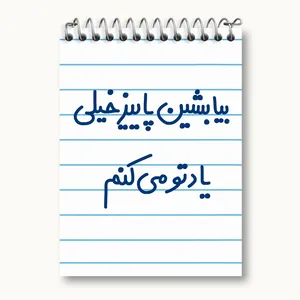 بیا بشین پاییز خیلی
یاد تو می کنم